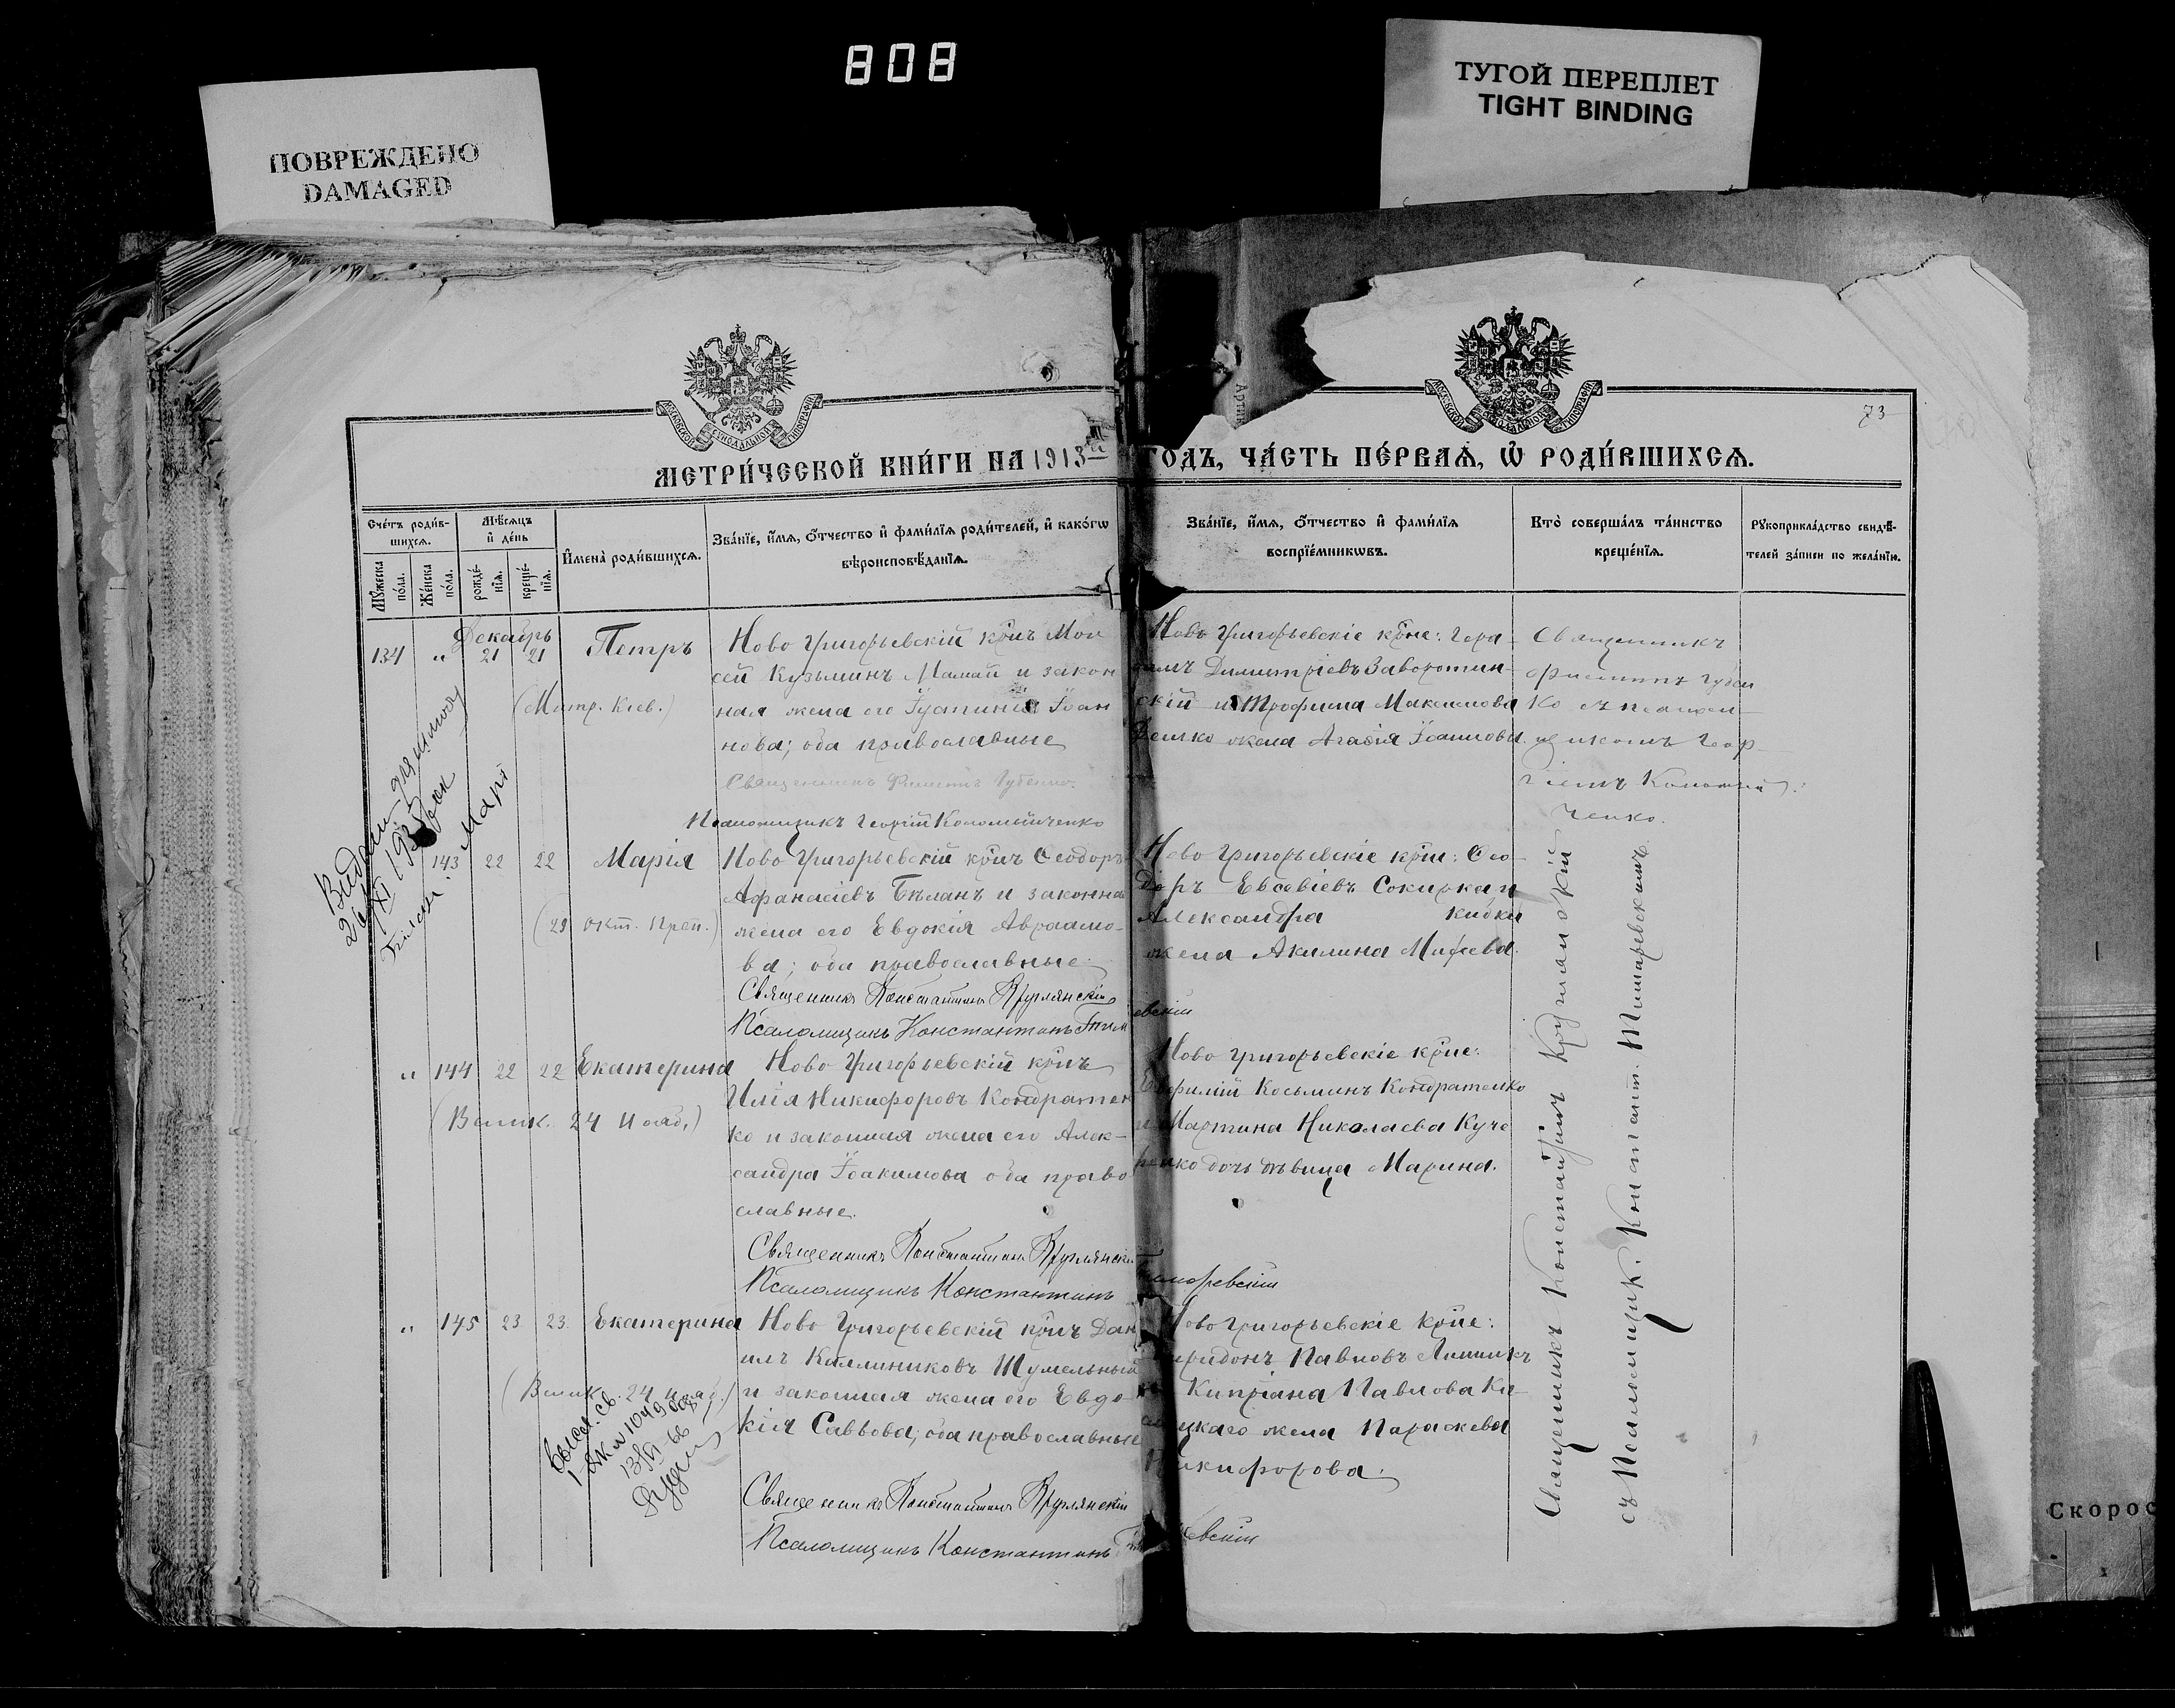 808
ПОВРЕЖДЕНО
DAMAGED
ТУГОЙ ПЕРЕПЛЕТ
TIGHT BINDING
73
МЕТРИ́ЧЕСКОЙ КНИ́ГИ НА 1913 й ГОДЪ, ЧА́СТЬ ПЕ́РВАѦ, Ѡ҆ РОДИ́ВШИХСѦ.
Сче́тъ роди́в-
шихсѧ.
Мꙋ́жеска по́ла.
Же́нска по́ла.
Мѣ́сѧцъ
и҆ де́нь
рожде́-
нїѧ.
креще́-
нїѧ.
И҆мена̀ роди́вшихсѧ.
Зва́нїе, и҆́мѧ, ѻ҆́тчество и҆ фами́лїѧ роди́телей, и҆ како́гѡ
вѣроисповѣ́данїѧ.
Зва́нїе, и҆́мѧ, ѻ҆́тчество и҆ фами́лїѧ
воспрїе́мникѡвъ.
Кто̀ соверша́лъ та́инство
креще́нїѧ.
Рꙋкоприкла́дство свидѣ́-
телей за́писи по жела́нїю.
Декабрь
134 " 21 21 Петръ
(Митр. Кіев.)
Ново Григорьевскій крнъ Мои
сей Кузьминъ Мамай и закон
ная жена его Іустинія Іоан
нова; оба православные
Священникъ Филиппъ Губенко.
Псаломщикъ Георгій Коломійченко
Ново Григорьевскіе крне: Гера-
симъ Димитріевъ Заворотин-
скій и Трофима Максимова
жена Агафія Іоаннова.
Священникъ
Филиппъ Губен
ко съ псалом
щикомъ Геор-
гіемъ Коломій
ченко.
26/XI 193
143 22 22 Марія
(29 окт. Преп.)
Ново Григорьевскій крнъ Ѳеодоръ
Афанасіевъ Бѣланъ и законна
жена его Евдокія Авраамо-
ва; оба православные
Священникъ Константинъ Круглянскій
Псаломщикъ Константинъ Тим евскій
Ново Григорьевскіе крне: Ѳео-
доръ Евсевіевъ Сокирка и
Александра
жена Акилина Миѳеева.
" 144 22 22 Екатерина
(Велик. 24 Нояб.)
Ново Григорьевскій крнъ
Илія Никифоровъ Кондратен
ко и законная жена его Алек-
сандра Іоакимова оба право
славные.
Священникъ Константинъ Круглянскій
Псаломщикъ Константинъ
Ново Григорьевскіе крне:
Евфимій Косьминъ Кондратенко
и Мартина Николаева Куче
ренко дочь дѣвица Марина.
" 145 23 23 Екатерина
(Велик. 24 Нояб.)
Ново Григорьевскій крнъ Дан
илъ Каллиниковъ Шумельный
и законная жена его Евдо-
кія Саввова; оба православные
Священникъ Константинъ Круглянскій
Псаломщикъ Константинъ
Ново Григорьевскіе крне:
Спиридонъ Павловъ
Кипріана Павлова
жена Параскева
Никифорова.
1049
13/VI-66
Священникъ Константинъ Круглянскій
съ Псаломщик. Констант.
Скорос